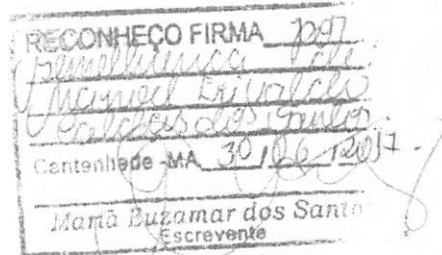 RECONHEÇO FIRMA por
Semelhança de
Manoel Erivaldo
Caldas dos Santos
Cantanhede -MA 30 / 06 / 2017.
Maria Buzamar dos Santo
Escrevente